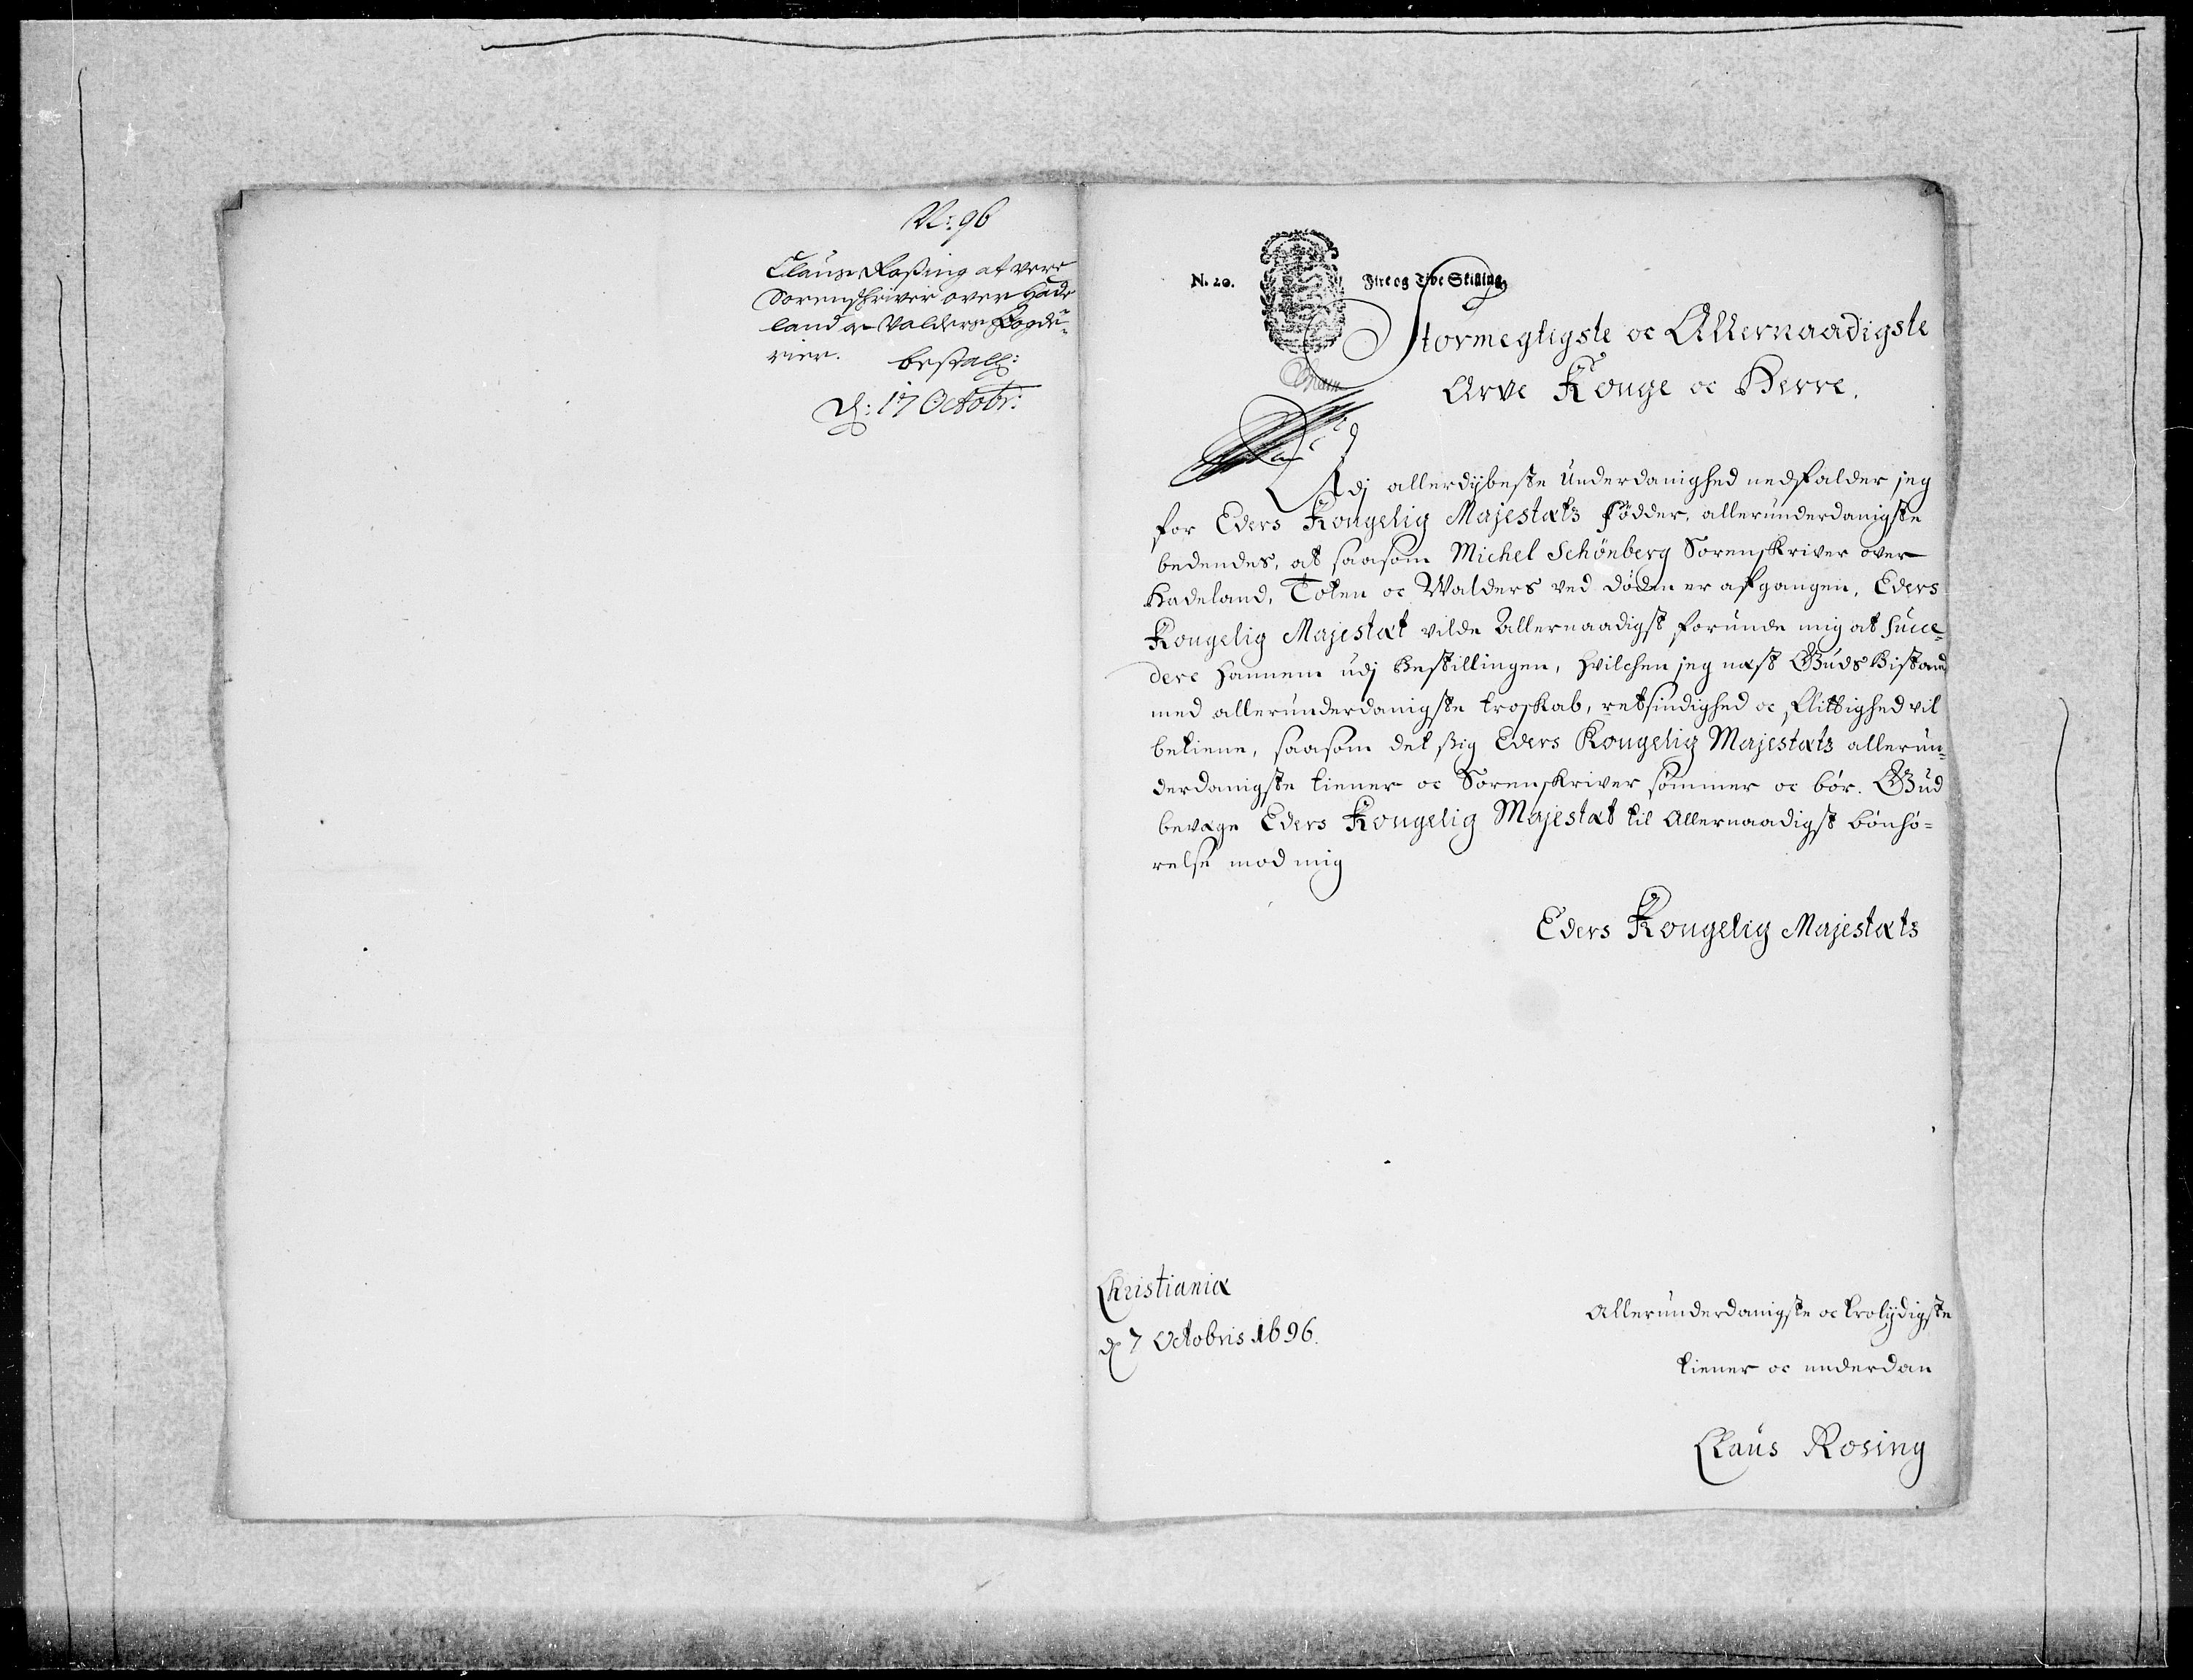 N: 96
Claus Rosing at vere
Sorenschriver over Hade
land og Valders Fogde¬
rier. bestall:
d: 17 Octobr:
N. 20. Fire og Tive Skilling
Stormegtigste oc Allernaadigste
Arve Konge oc Herre.
Udj allerdybeste Underdanighed nedfalder jeg
for Eders Kongelig Majestæts födder, allerunderdanigste
bedendes, at saasom Michel Schönberg Sorenskriver over
Hadeland, Toten oc Walders ved döden er afgangen, Eders
Kongelig Majestæt vilde Allernaadigst forunde mig at succe¬
dere hannem udj Bestillingen, hvilchen jeg næst Guds Bistand
med allerunderdanigste troskab, retsindighed oc flittighed vil
betiene, saasom det sig Eders Kongelig Majestæts allerun¬
derdanigste tiener oc Sorenskriver sömmer oc bör. Gud
bevæge Eders Kongelig Majestæt til Allernaadigst bönhö=
relse mod mig
Eders Kongelig Majestæts
Christiania
d 7 Octobris 1696.
Allerunderdanigste oc trolydigste
tiener oc underdan
Claus Rosing